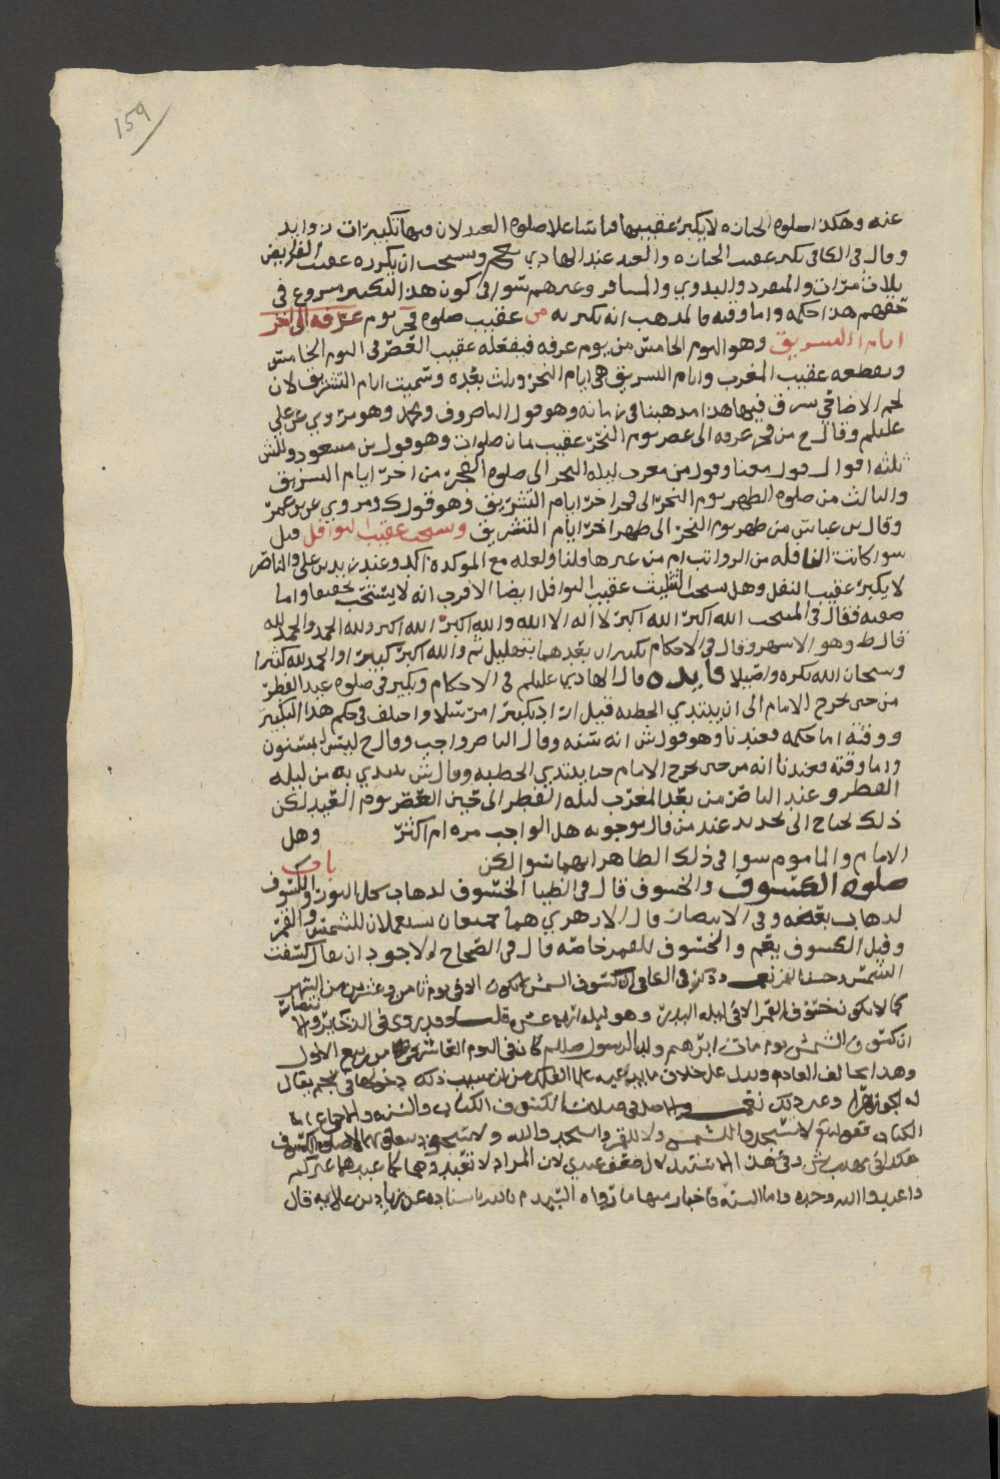 159
عنه وهكذا صلوه الجنازه لا يكبر عقيبها فاما شا علا صلوه العيد لان فيها تكبيرات زوايد
وقال في الكافي يكبر عقيب الجنازه والعيد عند الهادي ويستحب ان يكرره عقيب الفرايض
ثلاث مرات والمنفرد والبدوي والمسافر وغيرهم سوا في كون هذا التكبير مشروع في
حقهم هذا حكمه واما وقته فالمذهب انه يكبر به من عقيب صلوه فجر يوم عرفه الى اخر
ايام التشريق وهو اليوم الخامس من يوم عرفه فيفعله عقيب العصر في اليوم الخامس
ويقطعه عقيب المغرب وايام التشريق هي ايام النحر وثلث بعده وسميت ايام التشريق لان
لحم الاضاحي تشرق فيها هذا مذهبنا في زمانه وهو قول الناصر وف ومحمد وهو مروي عن علي
عليلم وقال ح من فجر عرفه الى عصر يوم النحر عقيب ثمان صلوات وهو قول بن مسعود وللش
ثلثه اقوال قول معنا وقول من مغرب ليله النحر الى صلوه الفجر من اخر ايام التشريق
والثالث من صلوه الظهر يوم النحر الى فجر اخر ايام التشريق وهو قول ك ومروي عن بن عمر
وقال بن عباس من ظهر يوم النحر الى ظهر اخر ايام التشريق ويستحب عقيب النوافل قيل
سوا كانت النافله من الرواتب ام من غيرها قلنا ولعله مع الموكدة اكد وعند زيد بن علي والناصر
لا يكبر عقيب النفل وهل يستحب عقيب النوافل ايضا الاقرب انه لا يستحب واما
صفته فقال في المنتخب الله اكبر الله اكبر لا اله الا الله والله اكبر الله اكبر ولله الحمد والحمد لله
قال ط وهو الاشهر وقال في الاحكام تكبيران بعدهما تهليل ثم والله اكبر كبيرا والحمد لله كثيرا
وسبحان الله بكره واصيلا فايده قال الهادي عليلم في الاحكام ويكبر في صلوه عيد الفطر
من حين يخرج الامام الى ان يبتدي الخطبه قيل اراد تكبيرا مرسلا واختلف في حكم هذا التكبير
ووقته اما حكمه فعندنا وهو قول ش انه سنه وقال الناصر واجب وقال ح ليس بمسنون
واما وقته فعندنا انه من حين يخرج الامام حتى يبتدي الخطبه وقال ش يبتدي به من ليله
الفطر وعند الناصر من بعد المغرب ليله الفطر الى حين العصر يوم العيد لكن
ذلك يحتاج الى تحديد عند من قال بوجوبه هل الواجب مره ام اكثر وهل
الامام والماموم سوا في ذلك الظاهر انهما سوا لكن باب
صلوه الكسوف والخسوف قال في الضيا الخسوف لذهاب كل النور والكسوف
لذهاب بعضه وفي الانتصار قال الازهري هما جميعا يستعملان للشمس والقمر
وقيل الكسوف يعم والخسوف للقمر خاصه قال في الصحاح الاجود ان يقال كسفت
الشمس وخسف القمر وذكر في ان كسوف الشمس لا يكون الا في يوم ثامن وعشرين من الشهر
كما لا يكون خسوف القمر الا في ليله البدر وهو ليله اربعة عشر قلت وقد روي في الذخيره والانتصار
ان كسوف الشمس يوم مات ابرهيم ولد الرسول صللم كان في اليوم العاشر من ربيع الاول
وهذا يخالف العاده ويدل على خلاف ما يدعيه علما الفلك من ان سبب ذلك دخولها في نجم يقال
له الجوزهرا وغير ذلك والاصل في صلاه الكسوف الكتاب والسنه والاجماع اما
الكتاب فقوله تع لا تسجدوا للشمس ولا للقمر واسجدوا لله
هكذا في مهذب ش وفي هذا الاستدلال ضعف عندي لان المراد لا تعبدوهما كما عبدهما غيركم
واعبدوا الله وحده واما السنه فاخبار منها ما رواه السيد م بالله باسناده عن زياد بن علاقه قال